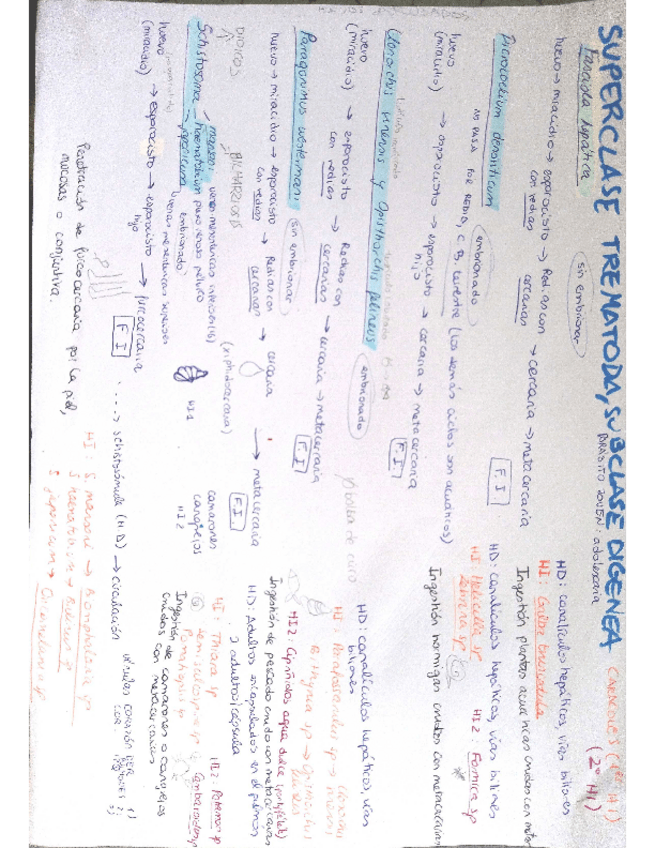 SUPERCLASE TREMATODA, SUBCLASE DIGENEA
CARACOLES (1er HI)
(2º HI)
PARÁSITO JOVEN: adolescaria
Fasciola hepática
sin embrionar
huevo → miracidio → esporocisto → Redias con → cercaria → metacercaria
con redias cercarias
F.I
HD: canalículos hepáticos, vías biliares
HI: Galba truncatula
Ingestión plantas acuáticas crudas con metac
Dicrocoelium dendriticum
embrionado
NO PASA POR REDIA, C.B. terrestre (los demás ciclos son acuáticos)
huevo → esporocisto → esporocisto → cercaria → metacercaria
(miracidio) hijo
F.I.
HD: canalículos hepáticos, vías biliares
HI: Helicella sp HI2: Formica sp
Ingestión hormigas crudas con metacercarias
Clonorchis sinensis y Opisthorchis felineus
embrionado
huevo → esporocisto → Redias con → cercaria → metacercaria
(miracidio) con redias cercarias
F.I
HD: canalículos hepáticos, vías
biliares
HI: Parafossarulus sp
Bithynia sp
HI2: Ciprínidos agua dulce
Ingestión de pescado crudo con metacercarias
Paragonimus westermani
sin embrionar
huevo → miracidio → esporocisto → Redias con → cercaria → metacercaria
con redias cercarias
F.I.
HI2
camarones
cangrejos
HD: Adultos encapsulados en el pulmón
2 adultos/cápsula
HI: Thiara sp
Semisulcospira sp
HI2: Potamon sp
Cambaroides sp
Ingestión de camarones o cangrejos
crudos con metacercarias
DIOICOS
BILHARZIOSIS
Schistosoma
mansoni: venas mesentéricas inferiores
haematobium: plexo venoso pélvico
japonicum: venas mesentéricas superiores
embrionado
huevo → esporocisto → esporocisto → furcocercaria → schistosómula (HD) → circulación
(miracidio) hijo
F.I
Penetración de furcocercaria por la piel,
mucosas o conjuntiva.
HI: S. mansoni → Biomphalaria sp
S. haematobium → Bulinus sp
S. japonicum → Oncomelania sp